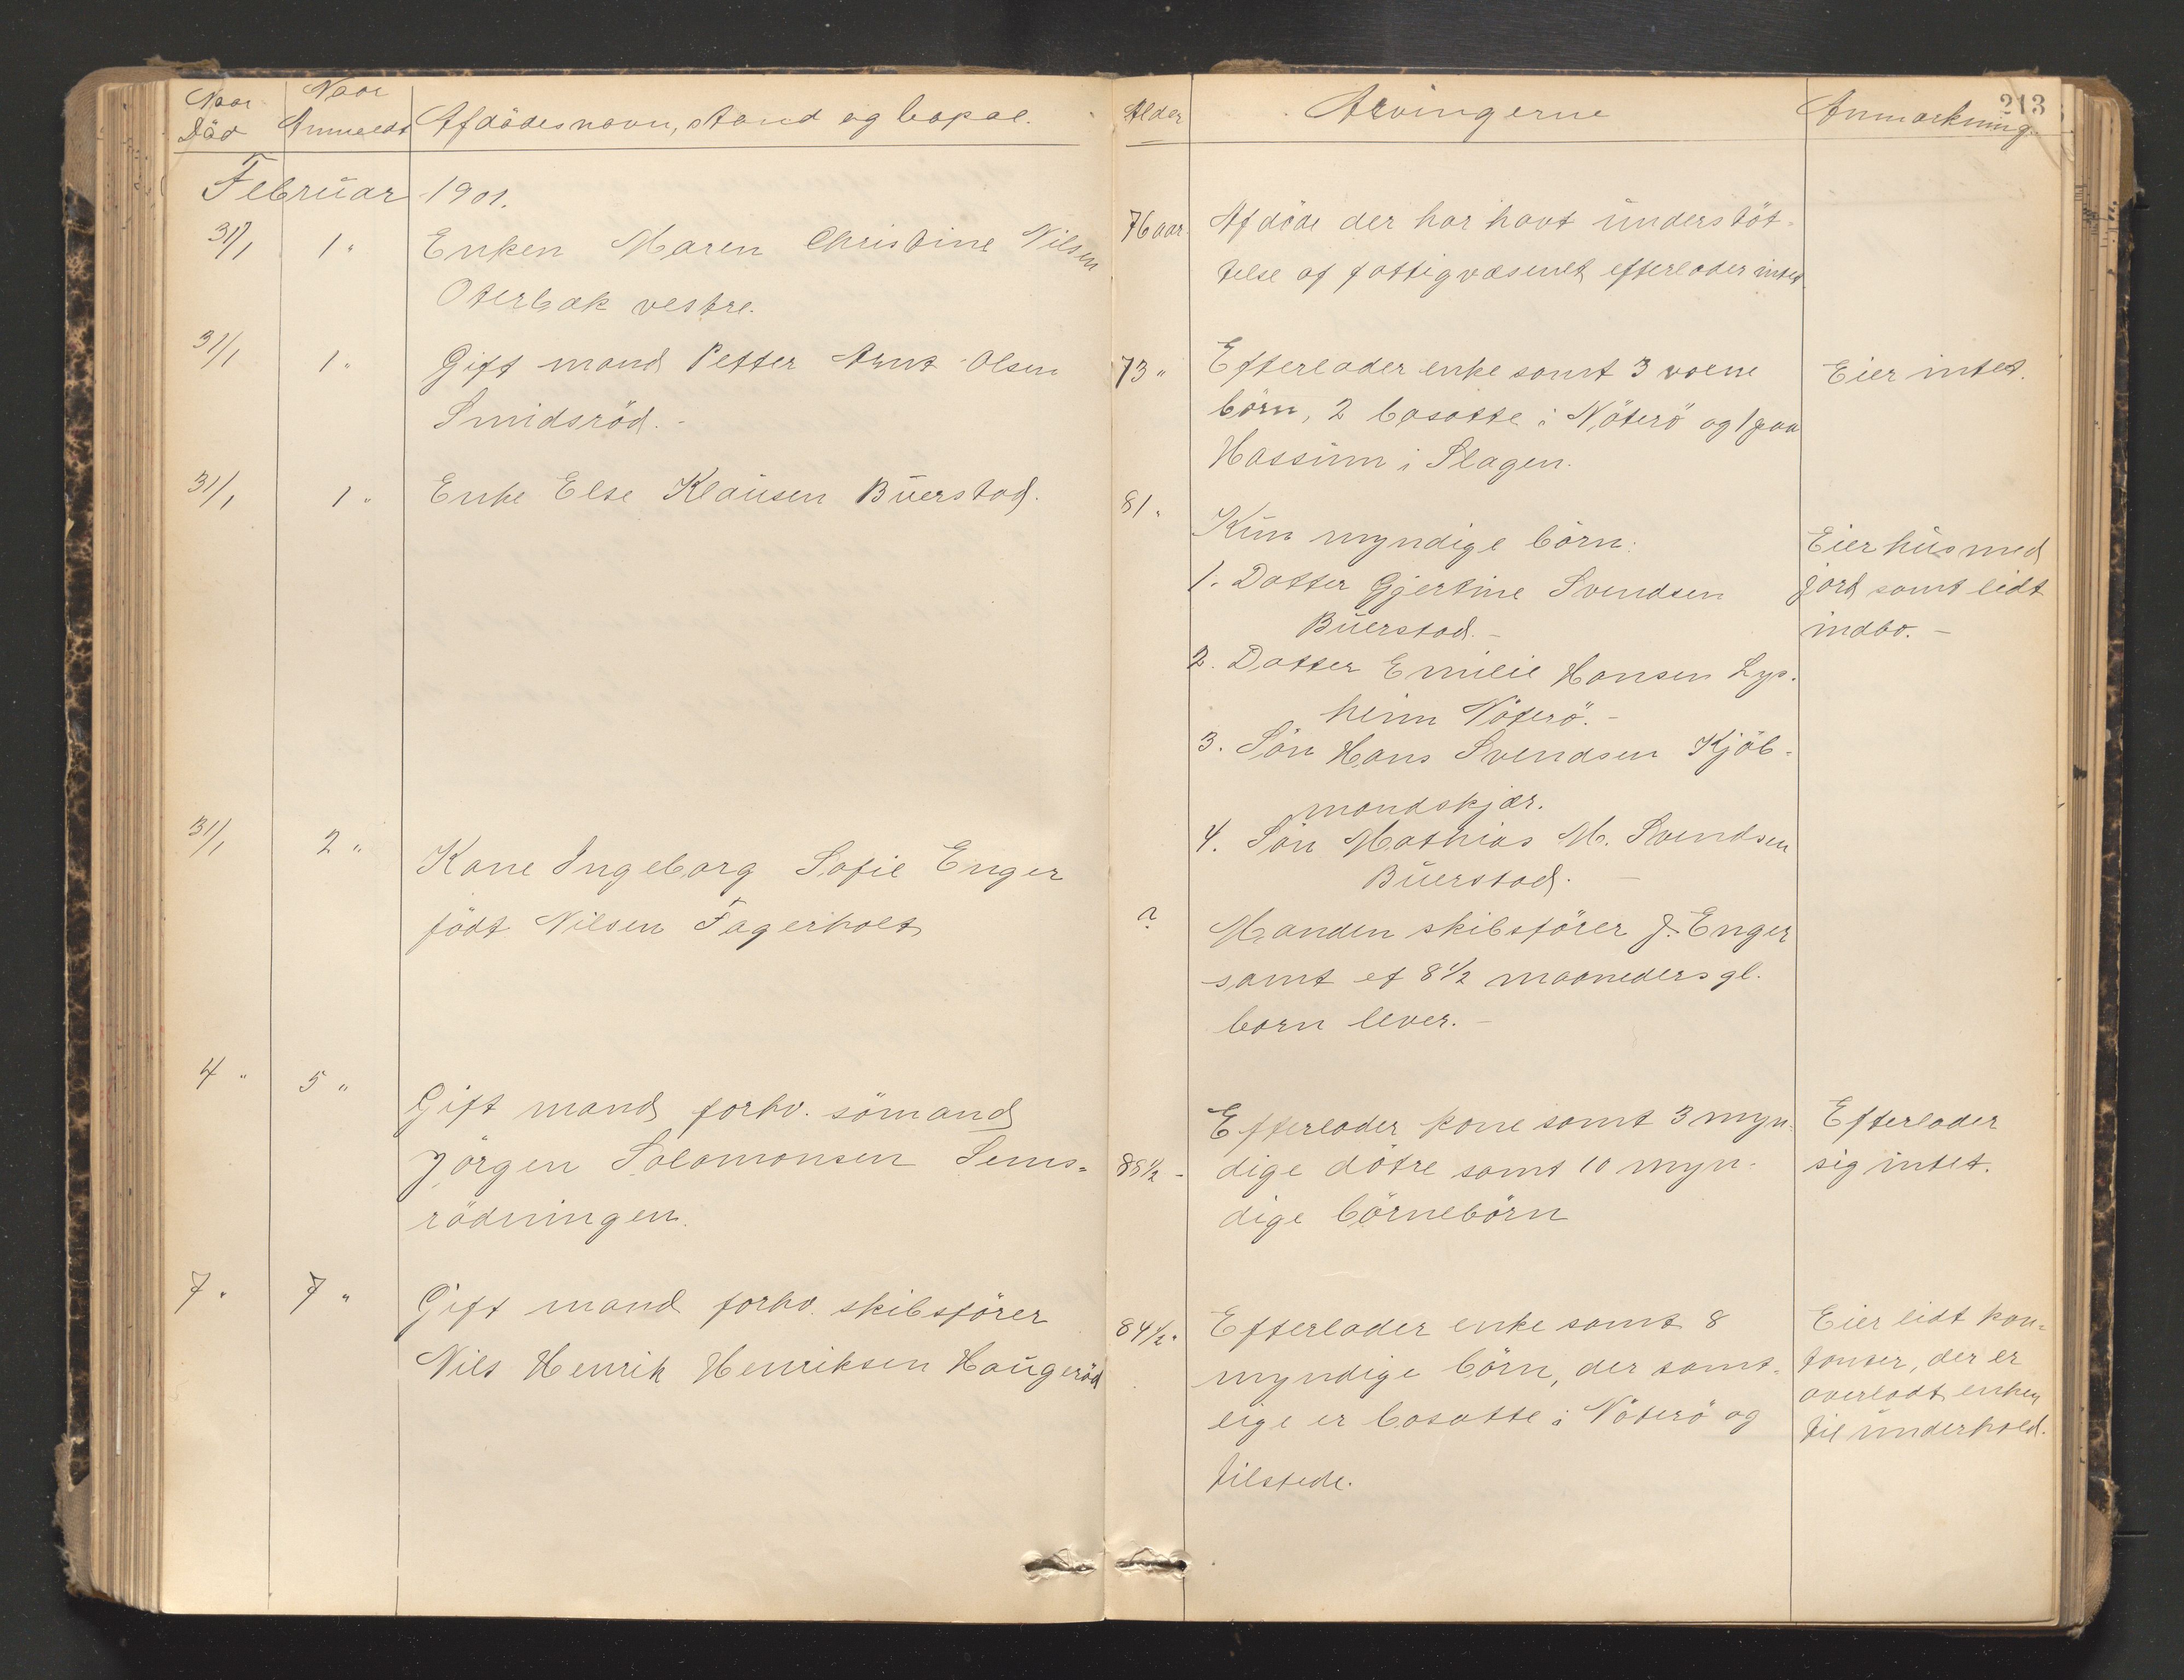 213
Naar Död
Naar Anmeldt
Afdödes navn, stand og bopæl.
Alder
Arvingerne
Anmærkning
Februar 1901.
31/1 1 " Enken Maren Christine Nilsen
Oterbæk vestre.
76 aar. Afdöde der har havt understöt-
telse af fattigvæsenet efterlader intet
31/1 1 " Gift mand Petter Arnt Olsen
Smidsröd. -
73 " Efterlader enke samt 3 voxne Eier intet.
börn, 2 bosatte i Nöterö og 1 paa
Hassum i Slagen.
31/1 1 " Enke Else Klausen Buerstad.
81 "
Kun myndige börn: Eier hus med
1. Datter Gjertine Svendsen jord samt lidt
Buerstad. - indbo. -
2. Datter Emilie Hansen Lys-
heim Nöterö. -
3. Sön Hans Svendsen Kjöb-
mandskjær.
4. Sön Mathias M. Svendsen
Buerstad. -
31/1 2 "
Kone Ingeborg Sofie Enger
födt Nilsen Fagerholt
? Manden skibsförer J. Enger
samt et 8 1/2 maaneders gl.
barn lever. -
4 " 5 "
Gift mand forhv. sömand
Jörgen Salomonsen Sems-
rödningen.
Efterlader kone samt 3 myn- Efterlader
85 1/2 - dige dötre samt 10 myn- sig intet.
dige börnebörn
7 " 7 " Gift mand forhv. skibsförer
Nils Henrik Henriksen Haugeröd
84 1/2 " Efterlader enke samt 8 Eier lidt kon-
myndige börn, der samt- tanter, der er
lige er bosatte i Nöterö og overladt enken
tilstede. til underhold.